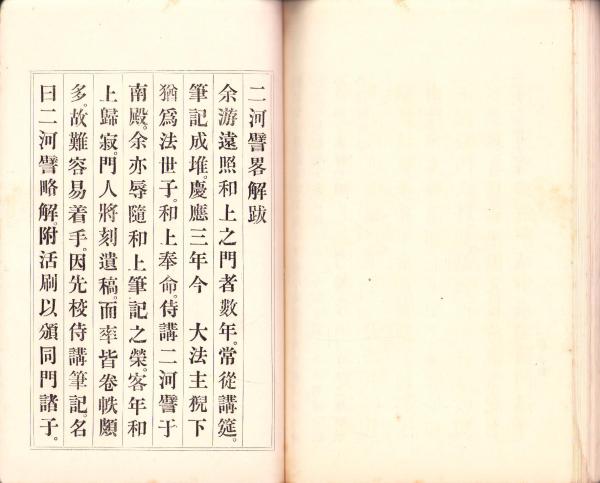 二河譬畧解跋
余游遠照和上之門者數年。常從講筵。
筆記成堆。慶應三年今　大法主猊下
猶爲法世子。和上奉命。侍講二河譬于
南殿。余亦辱隨和上筆記之榮。客年和
上歸寂。門人將刻遺稿。而率皆卷帙頗
多。故難容易着手。因先校侍講筆記。名
曰二河譬略解附活刷以頒同門諸子。